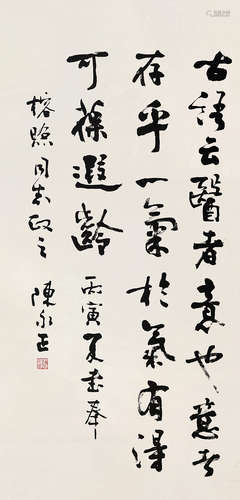 古語云醫者意也意者
存乎一氣於氣有得
可葆遐齡 丙寅夏書奉
榕照同志政之 陳永正